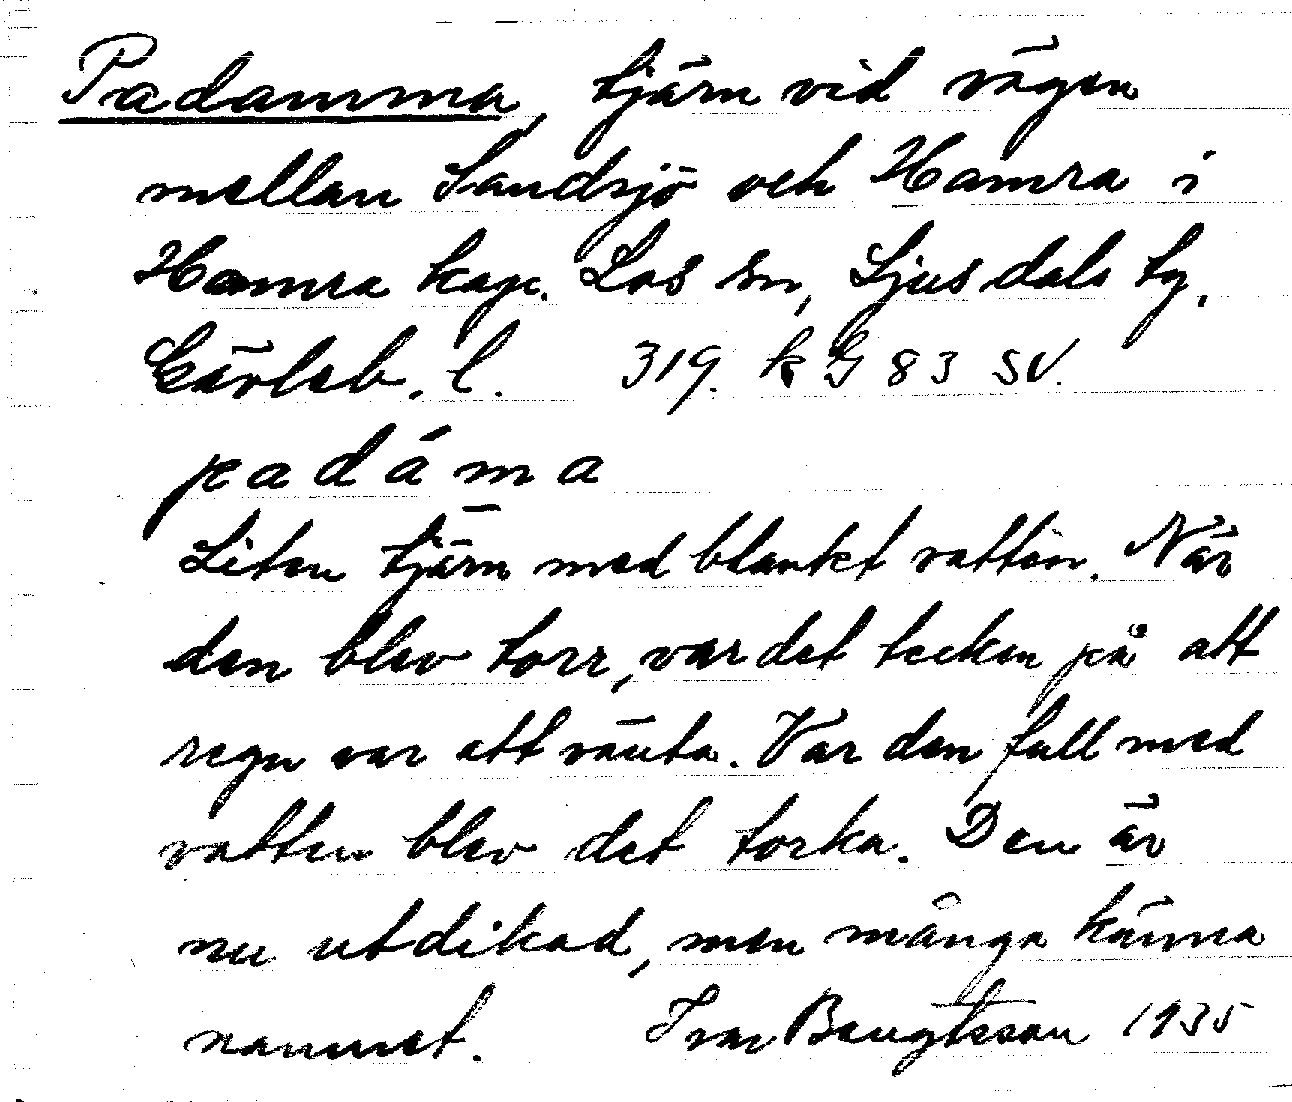 Padamma, tjärn vid vägen
mellan Sandsjö och Hamra i
Hamra kap. Los sn, Ljusdals tg,
Gävleb. l. 319. k G 83 SV.
padáma
Liten tjärn med blankt vatten. När
den blev torr, var det tecken på att
regn var att vänta. Var den full med
vatten blev det torka. Den är
nu utdikad, men många känna
namnet. Ivar Bengtsson 1935